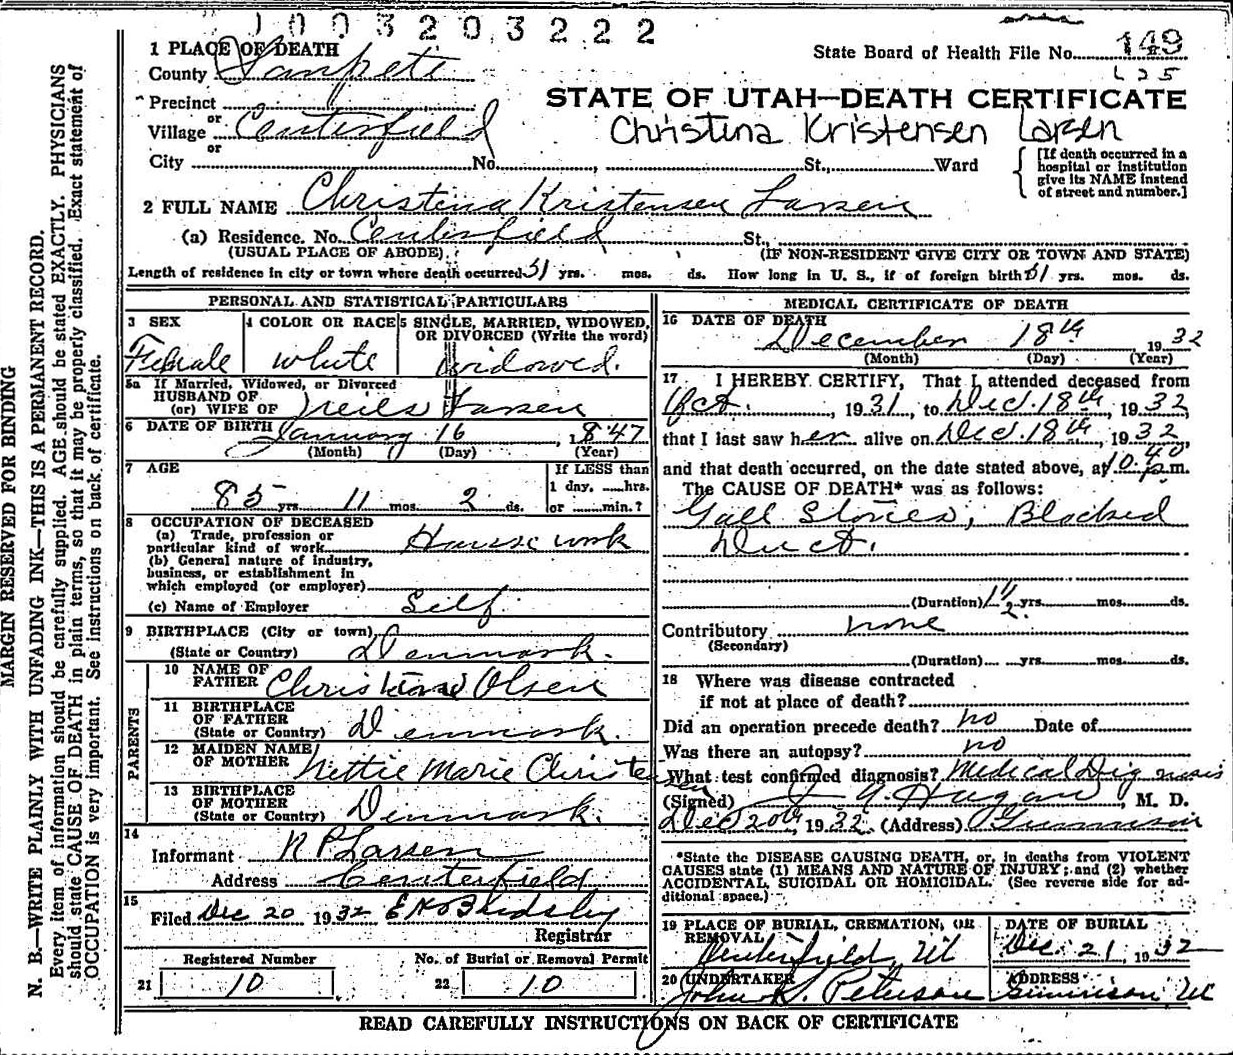 1003203222
1 PLACE OF DEATH
State Board of Health File No. 149
County Sanpete
L 25
Precinct
STATE OF UTAH—DEATH CERTIFICATE
or
Village Centerfield
Christina Kristensen Larsen
or
City No. St., Ward
[If death occurred in a
hospital or institution
give its NAME instead
of street and number.]
2 FULL NAME Christena Kristensen Larsen
(a) Residence. No. Centerfield St.,
(USUAL PLACE OF ABODE) (IF NON-RESIDENT GIVE CITY OR TOWN AND STATE)
Length of residence in city or town where death occurred 51 yrs. mos. ds. How long in U. S., if of foreign birth 51 yrs. mos. ds.
PERSONAL AND STATISTICAL PARTICULARS
3 SEX
Female
4 COLOR OR RACE
White
5 SINGLE, MARRIED, WIDOWED,
OR DIVORCED (Write the word)
Widowed.
5a If Married, Widowed, or Divorced
HUSBAND OF
(or) WIFE OF Neils Larsen
6 DATE OF BIRTH January 16, 1847
(Month) (Day) (Year)
7 AGE
85 yrs 11 mos. 2 ds.
If LESS than
1 day, hrs.
or min.?
8 OCCUPATION OF DECEASED
(a) Trade, profession or
particular kind of work House work
(b) General nature of industry,
business, or establishment in
which employed (or employer)
(c) Name of Employer Self
9 BIRTHPLACE (City or town)
(State or Country) Denmark.
PARENTS
10 NAME OF
FATHER Olsen
11 BIRTHPLACE
OF FATHER
(State or Country) Denmark.
12 MAIDEN NAME
OF MOTHER Nettie Marie Christensen
13 BIRTHPLACE
OF MOTHER
(State or Country) Denmark.
14
Informant N P Larsen
Address Centerfield
15
Filed Dec 20 1932
Registrar
Registered Number
21 10
No. of Burial or Removal Permit
22 10
MEDICAL CERTIFICATE OF DEATH
16 DATE OF DEATH
December 18th 1932
(Month) (Day) (Year)
17 I HEREBY CERTIFY, That I attended deceased from
Oct. , 1931, to Dec. 18th, 1932,
that I last saw her alive on Dec. 18th, 1932,
and that death occurred, on the date stated above, at 10:40 p.m.
The CAUSE OF DEATH* was as follows:
Gall Stones, Blocked
Duct.
(Duration) 1 1/2 yrs. mos. ds.
Contributory none
(Secondary)
(Duration) yrs. mos. ds.
18 Where was disease contracted
if not at place of death?
Did an operation precede death? no Date of
Was there an autopsy? no
What test confirmed diagnosis? Medical Dignosis
(Signed) Hagan, M. D.
Dec 20th, 1932. (Address) Gunnison
*State the DISEASE CAUSING DEATH, or, in deaths from VIOLENT
CAUSES state (1) MEANS AND NATURE OF INJURY; and (2) whether
ACCIDENTAL, SUICIDAL OR HOMICIDAL. (See reverse side for ad-
ditional space.)
19 PLACE OF BURIAL, CREMATION, OR
REMOVAL
Centerfield Ut
DATE OF BURIAL
Dec. 21, 1932
20 UNDERTAKER
John K. Peterson
ADDRESS
Gunnison Ut
READ CAREFULLY INSTRUCTIONS ON BACK OF CERTIFICATE
MARGIN RESERVED FOR BINDING
N. B.—WRITE PLAINLY WITH UNFADING INK—THIS IS A PERMANENT RECORD.
Every item of information should be carefully supplied. AGE should be stated EXACTLY. PHYSICIANS
should state CAUSE OF DEATH in plain terms, so that it may be properly classified. Exact statement of
OCCUPATION is very important. See instructions on back of certificate.